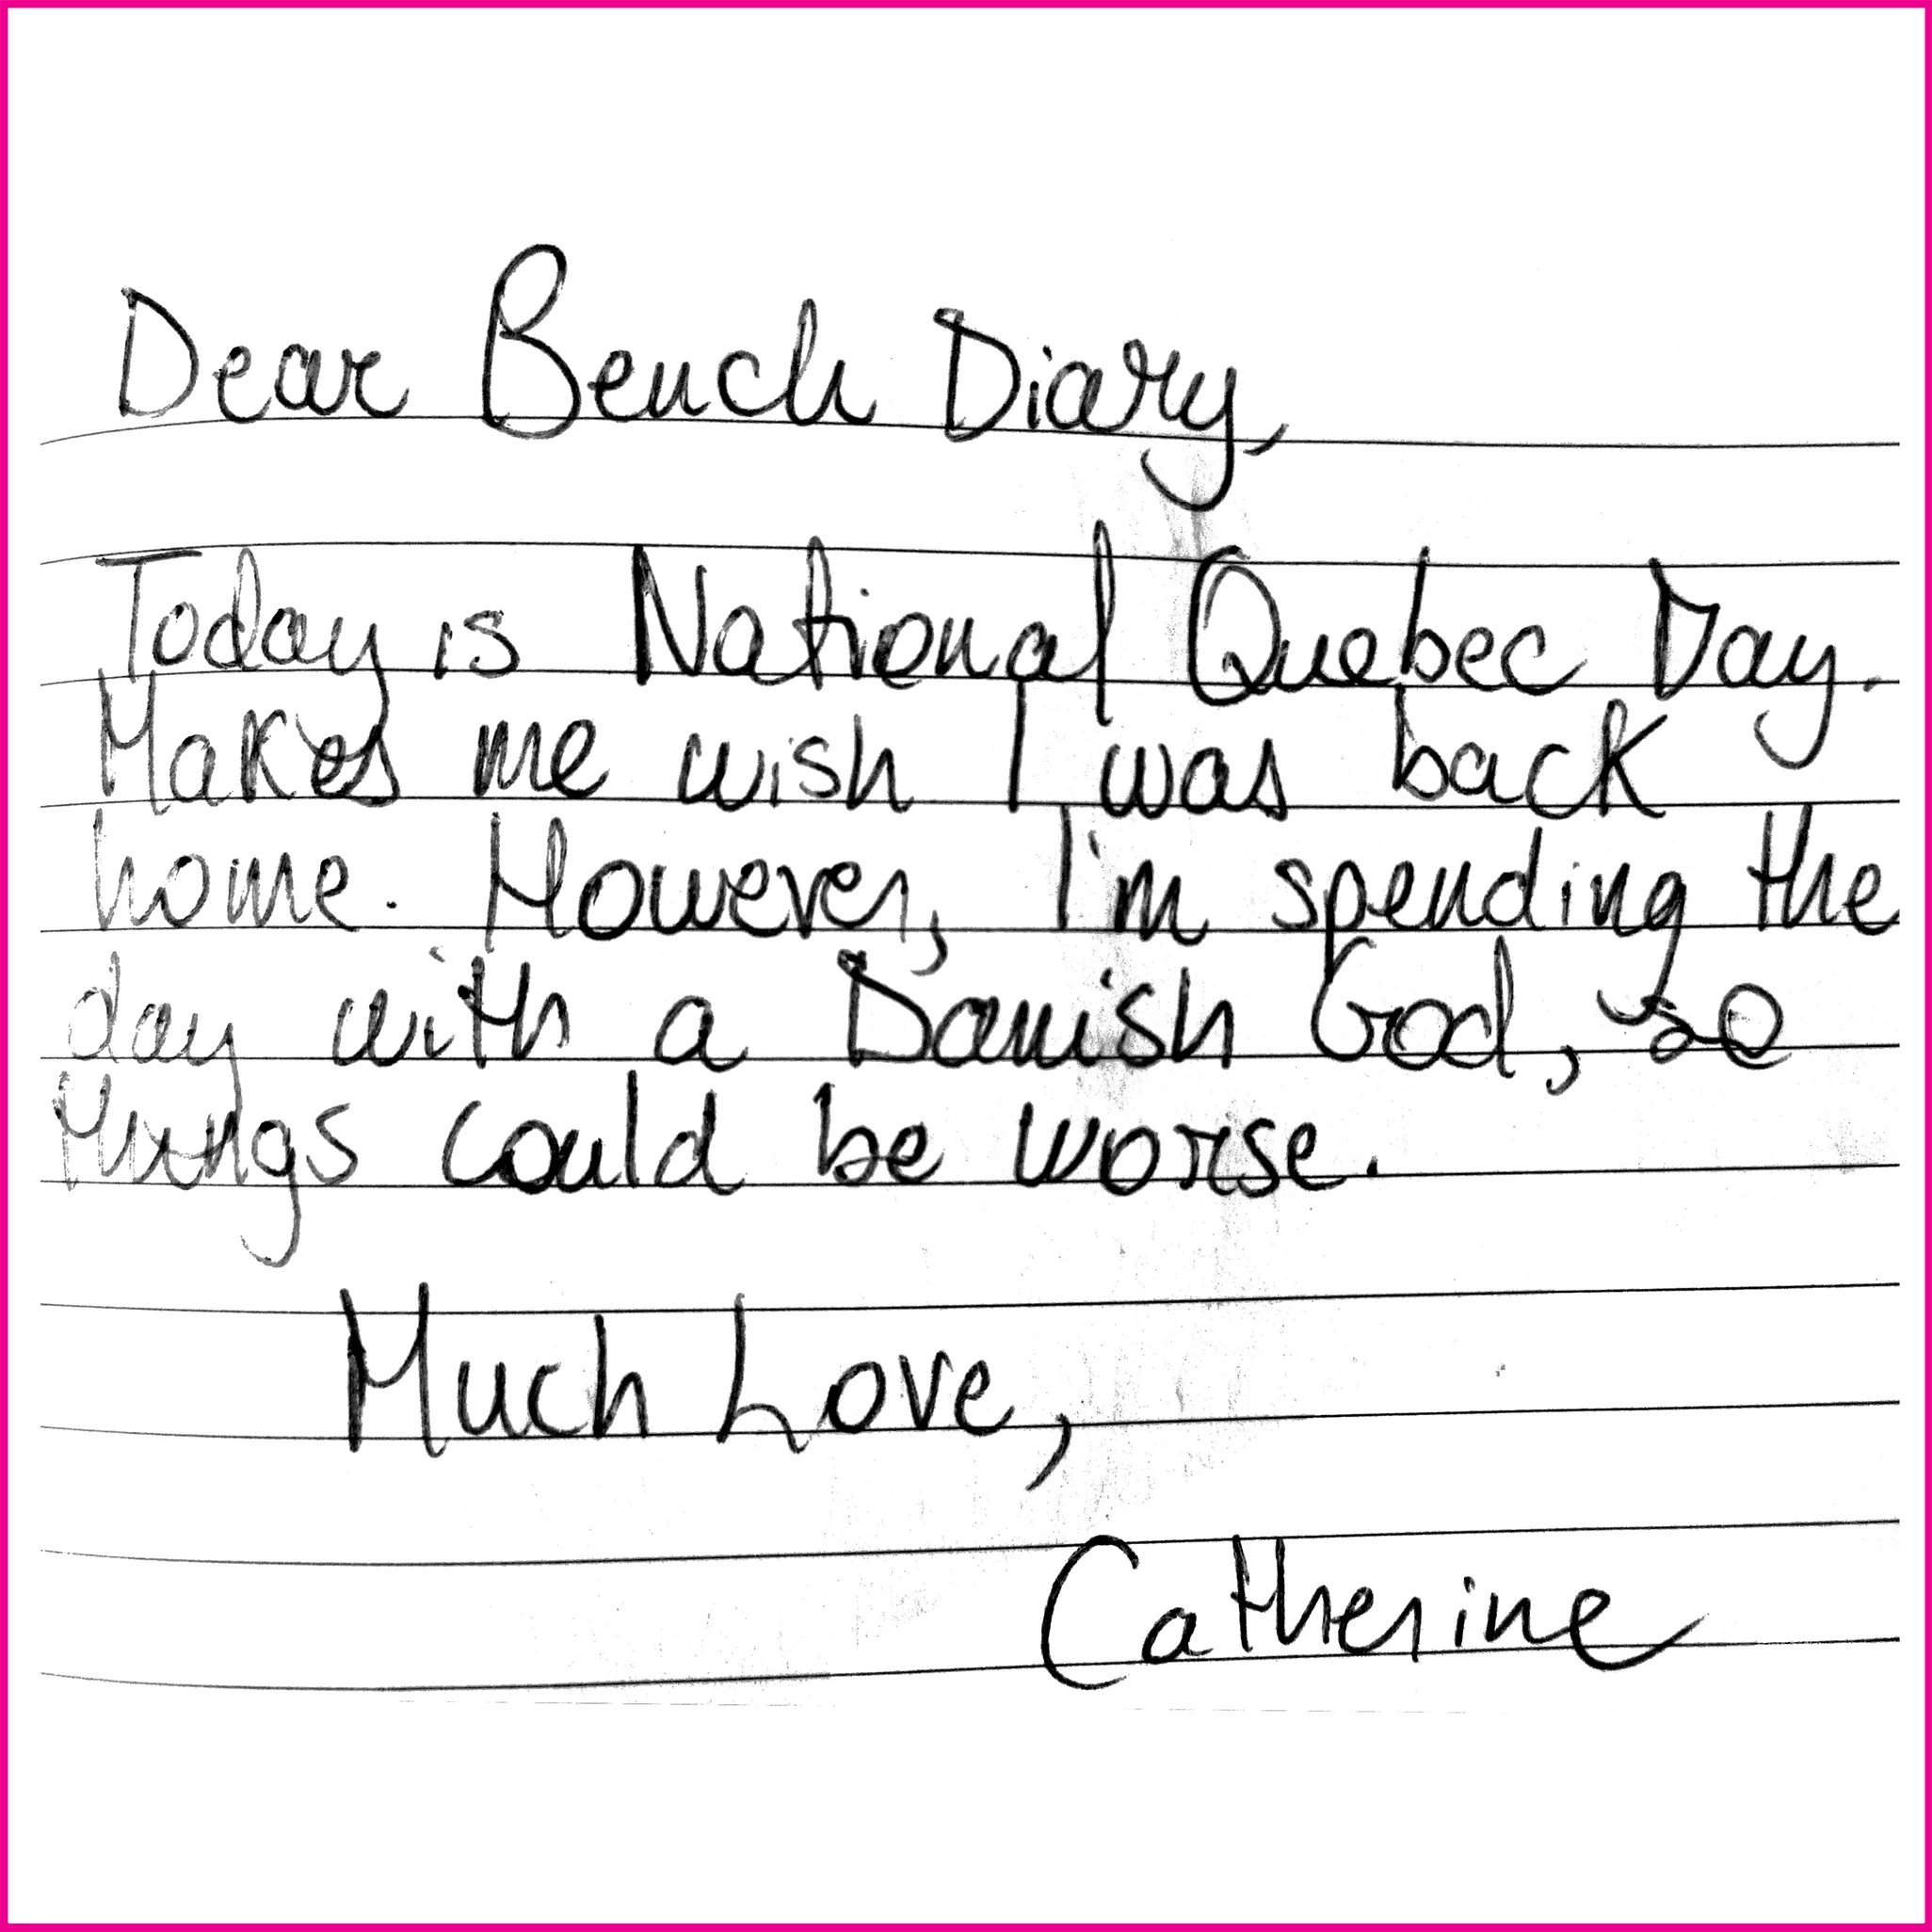 Dear Bench Diary,
Today is National Quebec Day.
Makes me wish I was back
home. However, I'm spending the
day with a Danish God, so
things could be worse.
Much Love,
Catherine